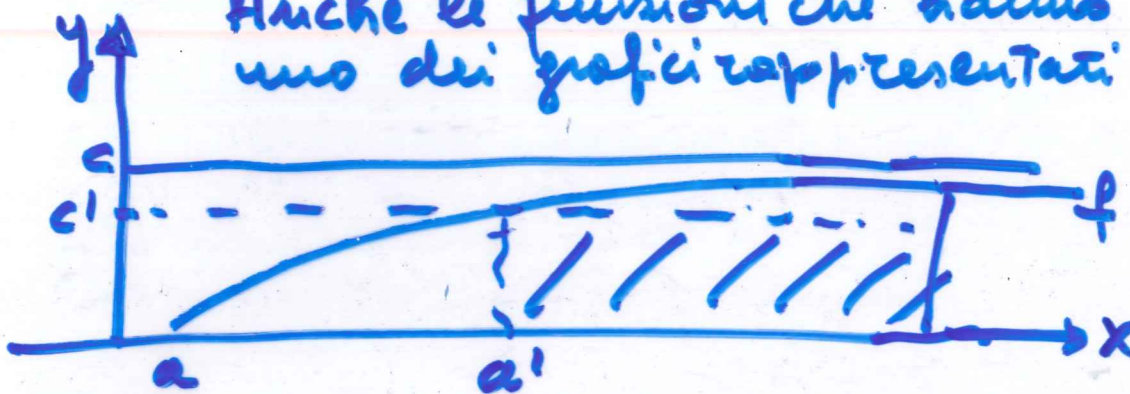 Anche le funzioni che hanno
uno dei grafici rappresentati
y
c
c'
f
a
a'
x